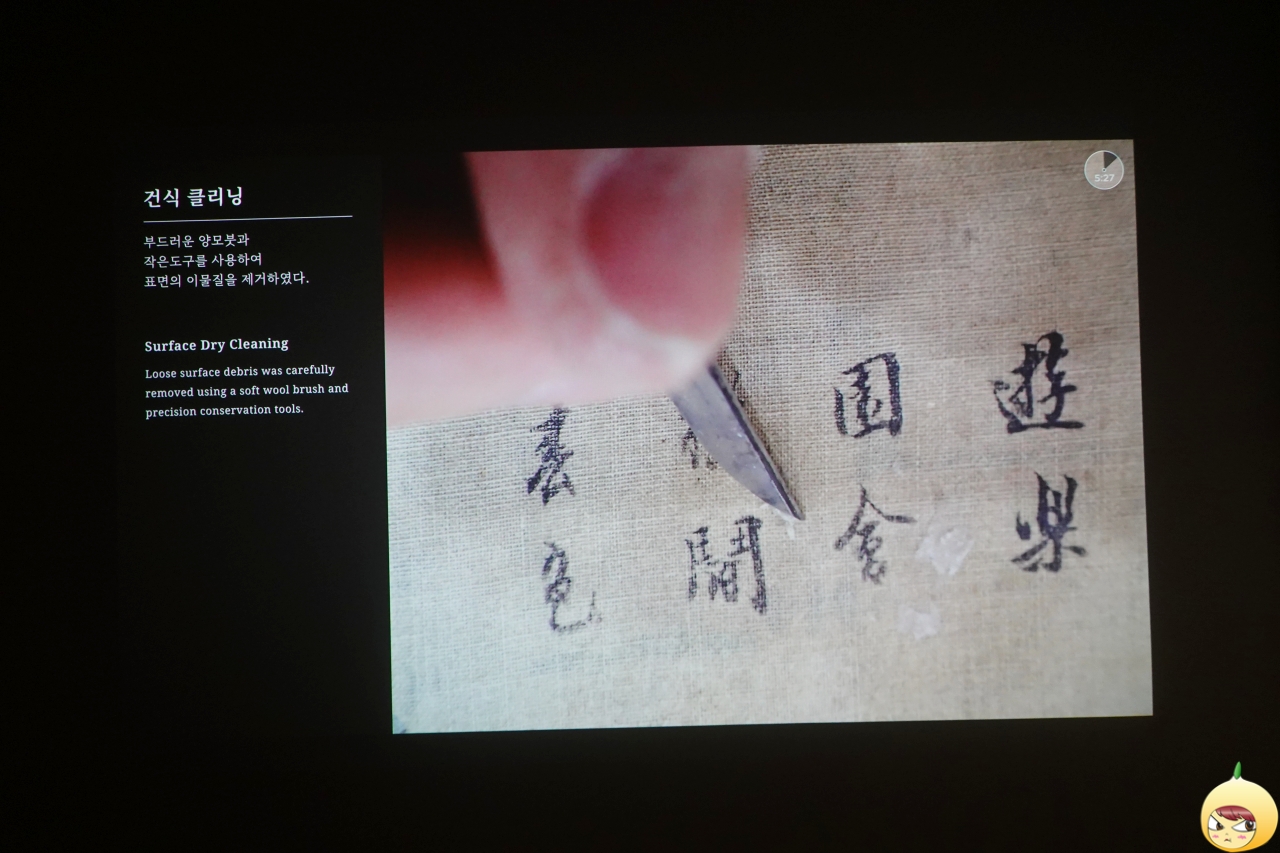 건식 클리닝
부드러운 양모붓과
작은도구를 사용하여
표면의 이물질을 제거하였다.
Surface Dry Cleaning
Loose surface debris was carefully
removed using a soft wool brush and
precision conservation tools.
5:27
遊樂
園舍
鬧
春色